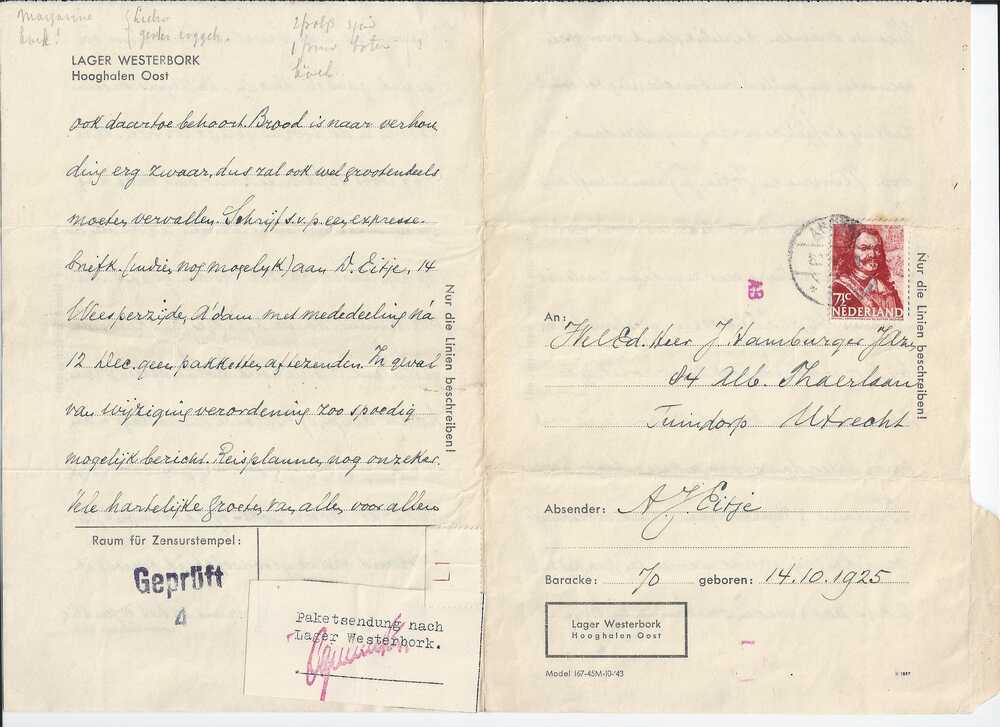 Margarine
koek!
LAGER WESTERBORK
Hooghalen Oost
ook daartoe behoort. Brood is naar verhou
ding erg zwaar, dus zal ook wel grootendeels
moeten vervallen. Schrijf s.v.p. een expresse-
briefk. (indien nog mogelyk) aan D. Eitje, 14
Weesperzijde, A'dam met mededeeling ná
12 Dec. geen pakketten af te zenden. In geval
van wijziging verordening zoo spoedig
mogelijk bericht. Reisplannen nog onzeker.
Vele hartelijke Groeten van allen voor allen
Nur die Linien beschreiben!
Raum für Zensurstempel:
Geprüft
4
Paketsendung nach
Lager Westerbork.
AB
7½c
NEDERLAND
Nur die Linien beschreiben!
An: Wel.Ed. Heer J Hamburger JLzn
84 Alb. Thaerlaan
Tuindorp Utrecht
Absender: A J. Eitje
Baracke: 70 geboren: 14.10.1925
Lager Westerbork
Hooghalen Oost
Model 167-45M-10-'43